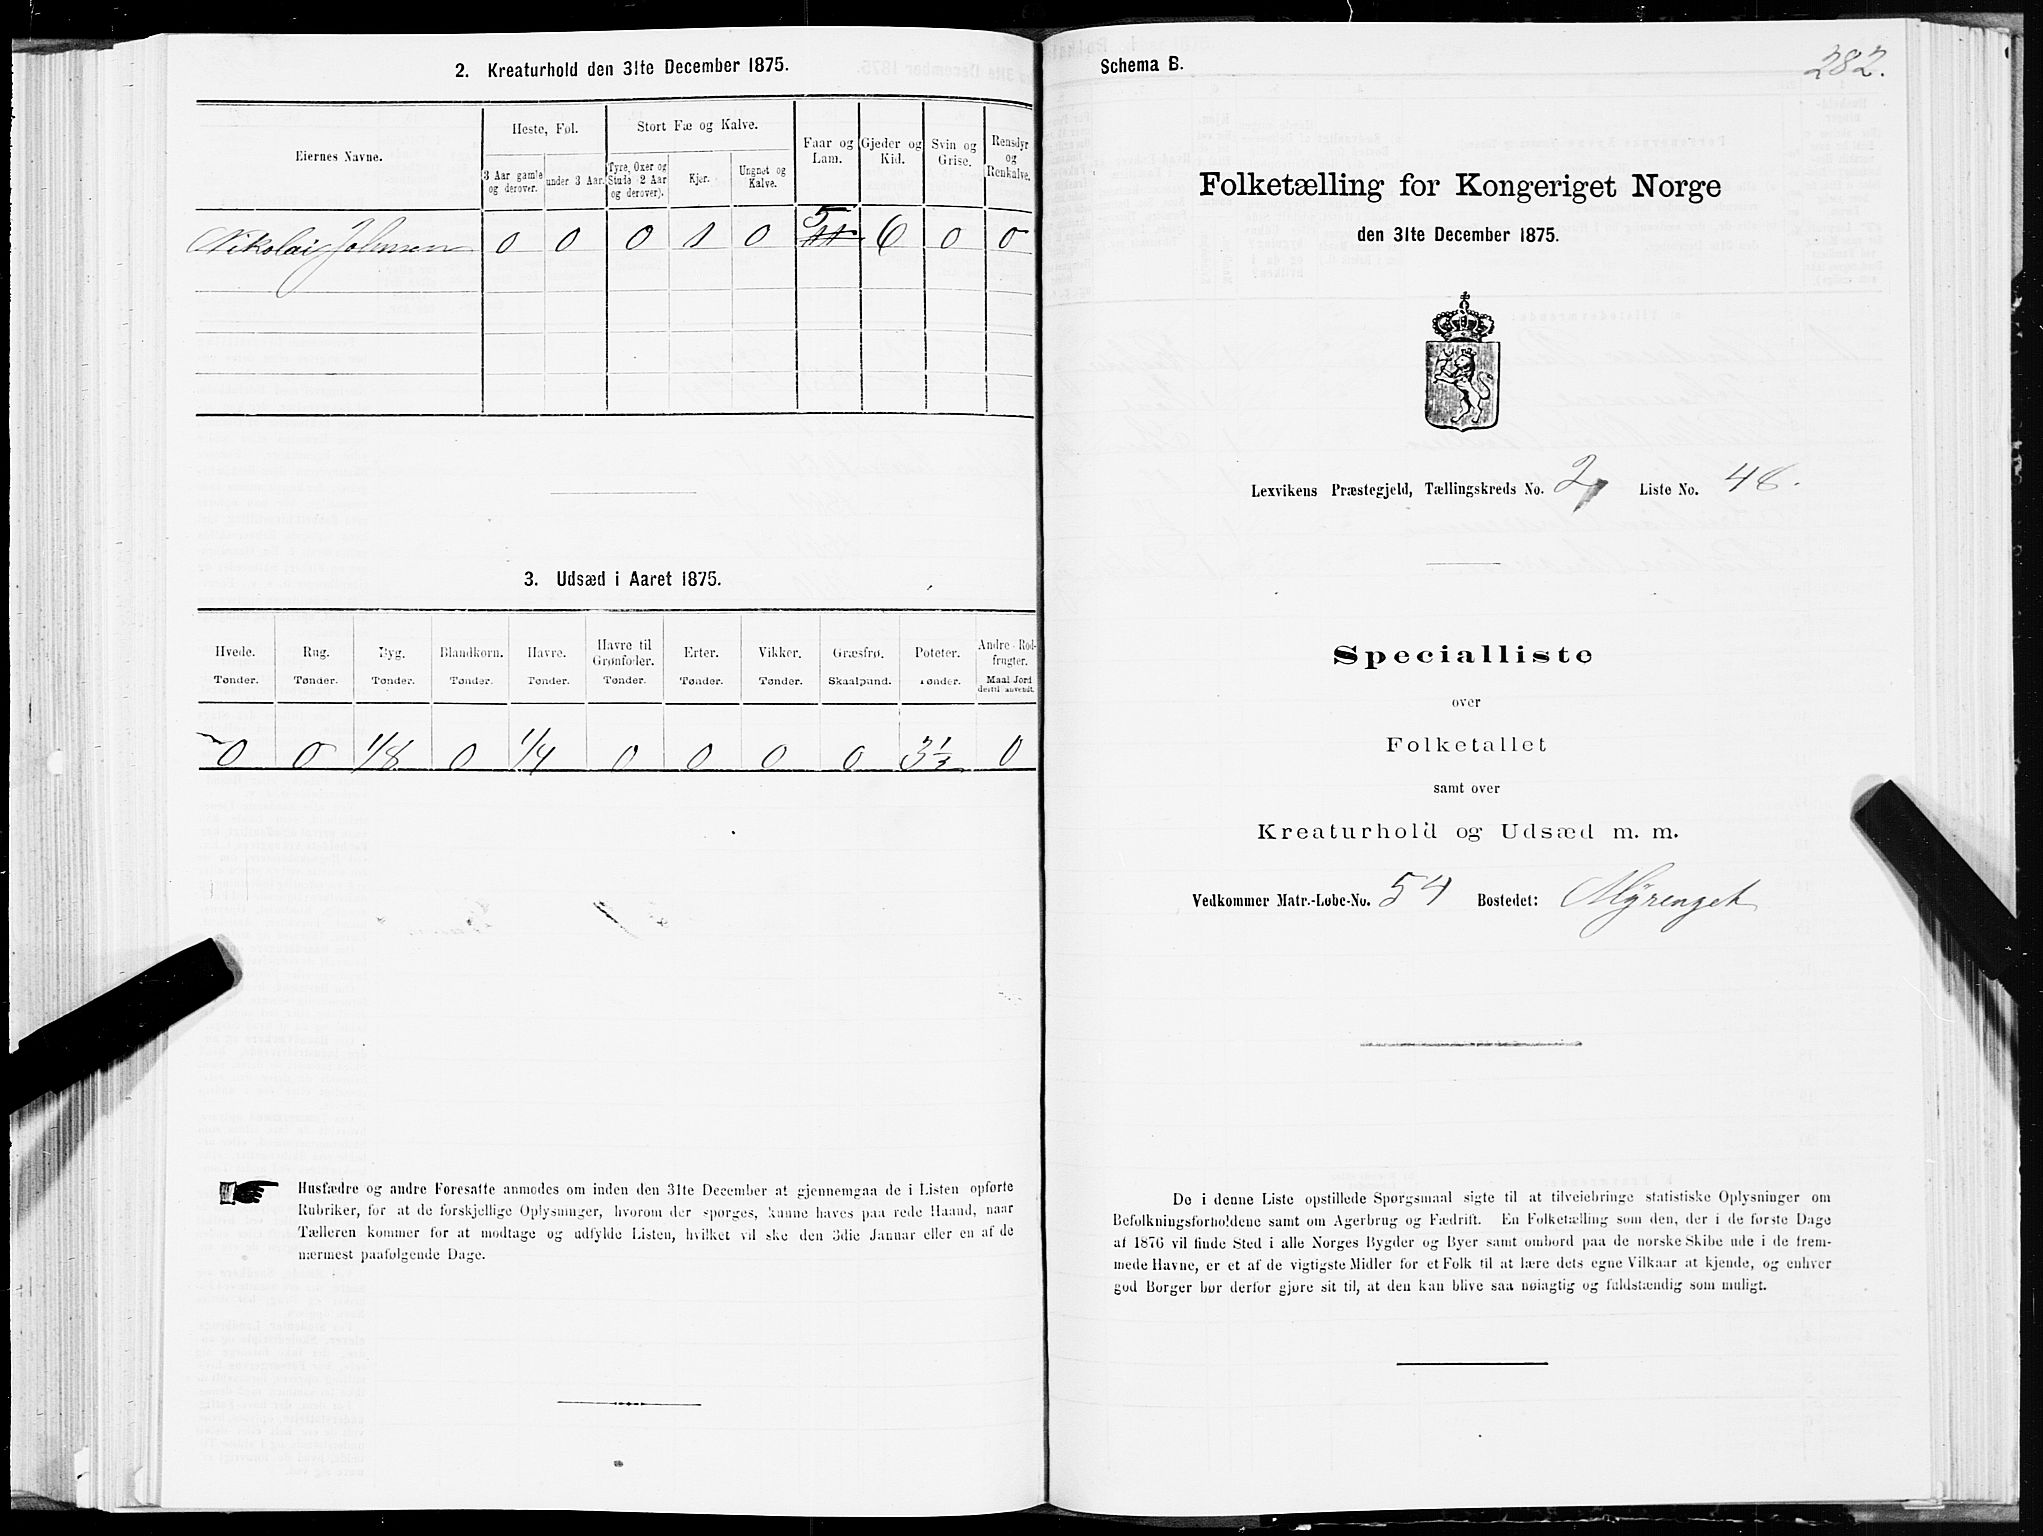 2. Kreaturhold den 31te December 1875.
Eiernes Navne.
Heste, Føl.
Stort Fæ og Kalve.
Faar og Lam.
Gjeder og Kid.
Svin og Grise.
Rensdyr og Renkalve.
3 Aar gamle og derover.
under 3 Aar.
Tyre, Oxer og Stude 2 Aar og derover).
Kjør.
Ungnøt og Kalve.
Nikolai Johnsen 0 0 0 1 0 5 6 0 0
3. Udsæd i Aaret 1875.
Hvede. Rug. Byg. Blandkorn. Havre. Havre til Grønfoder. Erter. Vikker. Græsfrø. Poteter. Andre Rodfrugter.
Tønder. Tønder. Tønder. Tønder. Tønder. Tønder. Tønder. Tønder. Skaalpund. Tønder. Maal Jord dertil anvendt.
0 0 1/8 0 1/4 0 0 0 0 3 1/3 0
Husfædre og andre Foresatte anmodes om inden den 31te December at gjennemgaa de i Listen opførte
Rubriker, for at de forskjellige Oplysninger, hvorom der spørges, kunne haves paa rede Haand, naar
Tælleren kommer for at modtage og udfylde Listen, hvilket vil ske den 3die Januar eller en af de
nærmest paafølgende Dage.
Schema B.
282.
Folketælling for Kongeriget Norge
den 31te December 1875.
Lexvikens Præstegjeld, Tællingskreds No. 2, Liste No. 48.
Specialliste
over
Folketallet
samt over
Kreaturhold og Udsæd m. m.
Vedkommer Matr.-Løbe-No. 54 Bostedet: Myrenget
De i denne Liste opstillede Spørgsmaal sigte til at tilveiebringe statistiske Oplysninger om
Befolkningsforholdene samt om Agerbrug og Fædrift. En Folketælling som den, der i de første Dage
af 1876 vil finde Sted i alle Norges Bygder og Byer samt ombord paa de norske Skibe ude i de frem-
mede Havne, er et af de vigtigste Midler for et Folk til at lære dets egne Vilkaar at kjende, og enhver
god Borger bør derfor gjøre sit til, at den kan blive saa nøiagtig og fuldstændig som muligt.